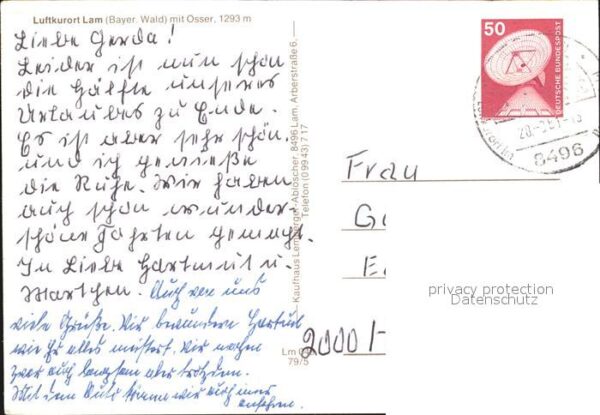 Luftkurort Lam (Bayer. Wald) mit Osser, 1293 m
Liebe Gerda!
Leider ist nun schon
die Hälfte unseres
Urlaubes zu Ende.
Es ist aber sehr schön
und ich genieße
die Ruhe. Wir haben
auch schon wunder
schöne Fahrten gemacht.
In Liebe Hartmut u.
Martchen. Auch von uns
viele Grüße. Wir bewundern
wie er alles meistert. Wir
zwar auch langsam aber trotzdem.
Mit dem Auto können wir auch
Kaufhaus Abloscher, 8496 Lam, Arberstraße 6,
Telefon (09943) 717
Lm
79/5
50
DEUTSCHE BUNDESPOST
8496
Frau
G
E
2000 H
privacy protection
Datenschutz